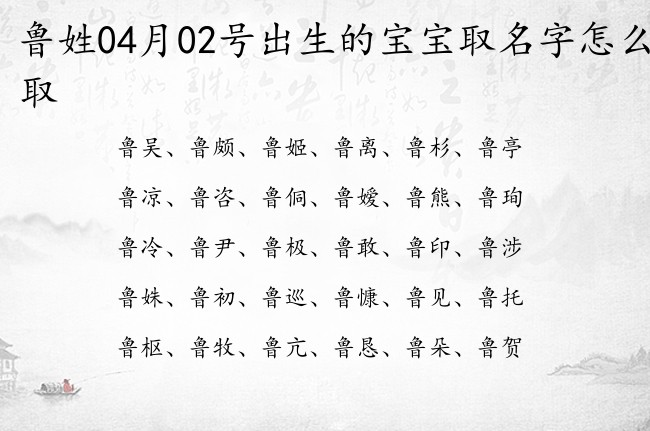 鲁姓04月02号出生的宝宝取名字怎么
取
鲁吴、鲁颇、鲁姬、鲁离、鲁杉、鲁亭
鲁凉、鲁咨、鲁侗、鲁嫒、鲁熊、鲁珣
鲁冷、鲁尹、鲁极、鲁敢、鲁印、鲁涉
鲁姝、鲁初、鲁巡、鲁慷、鲁见、鲁托
鲁枢、鲁牧、鲁亢、鲁恳、鲁朵、鲁贺